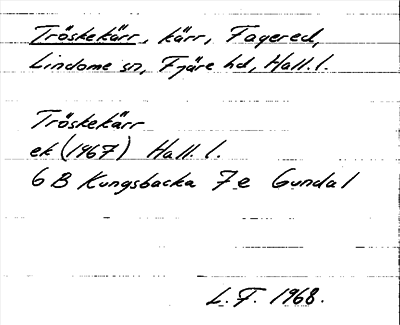 Tröskekärr, kärr, Fagered,
Lindome sn, Fjäre hd, Hall. l.
Tröskekärr
ek (1967) Hall. l.
6 B Kungsbacka 7 e Gundal
L. F. 1968.